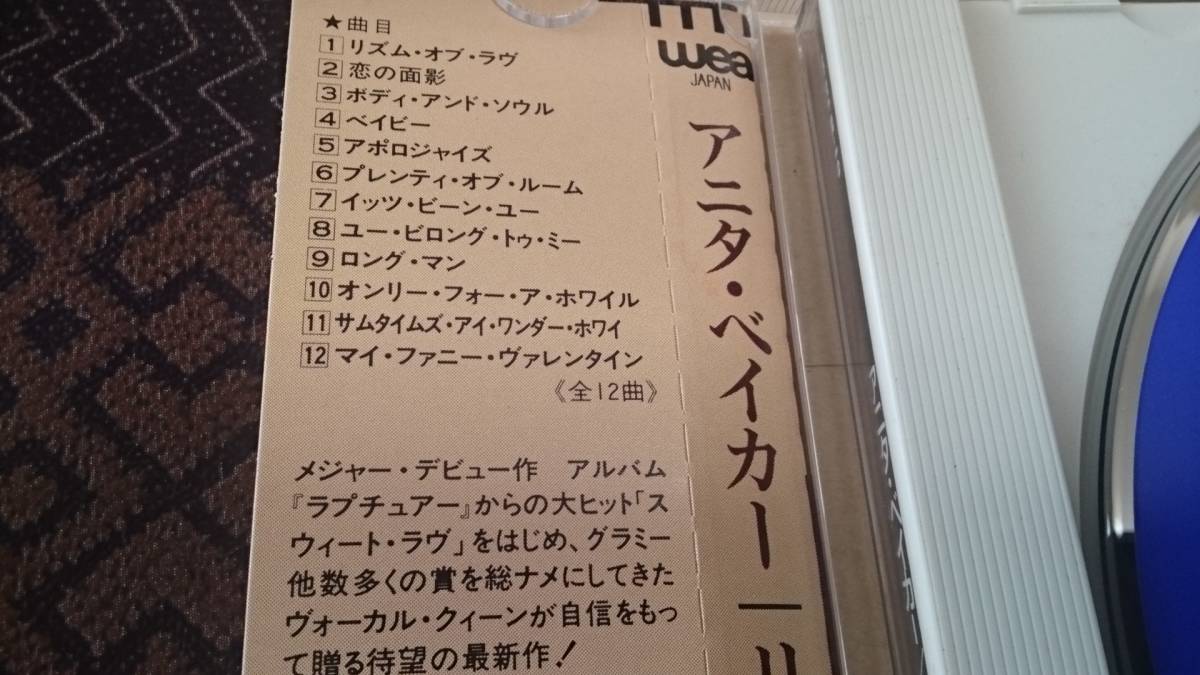 ★曲目
1 リズム・オブ・ラヴ
2 恋の面影
3 ボディ・アンド・ソウル
4 ベイビー
5 アポロジャイズ
6 プレンティ・オブ・ルーム
7 イッツ・ビーン・ユー
8 ユー・ビロング・トゥ・ミー
9 ロング・マン
10 オンリー・フォー・ア・ホワイル
11 サムタイムズ・アイ・ワンダー・ホワイ
12 マイ・ファニー・ヴァレンタイン
《全12曲》
メジャー・デビュー作 アルバム
『ラプチュアー』からの大ヒット「ス
ウィート・ラヴ」をはじめ、グラミー
他数多くの賞を総ナメにしてきた
ヴォーカル・クィーンが自信をもっ
て贈る待望の最新作!
wea
JAPAN
アニタ・ベイカー｜リ